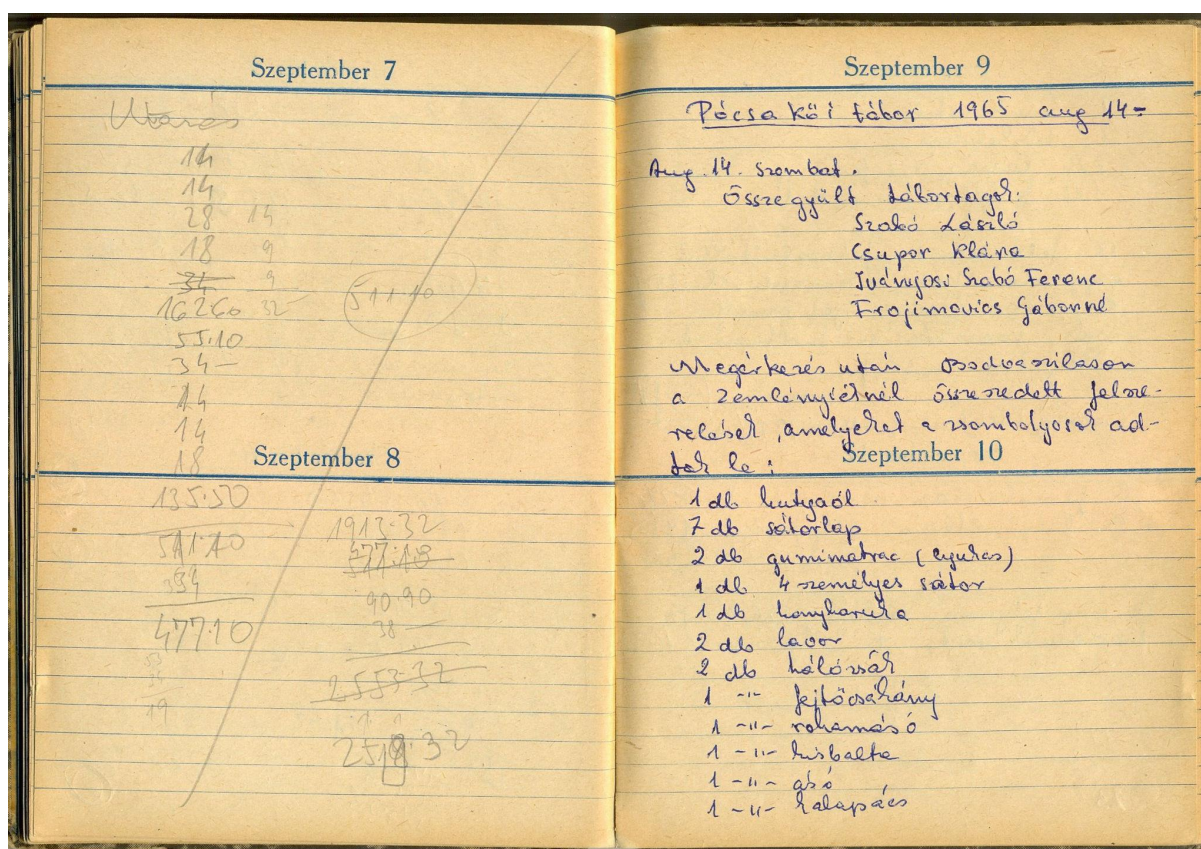 Szeptember 7
Utazás
14
14
28 14
18 9
34 9
162.60 32
511.10
55.10
34-
14
14
18
Szeptember 8
135.50
511.10
34
477.10
19
1913.32
477.10
90.90
38 —
2553.32
32
Szeptember 9
Pócsakői tábor 1965 aug 14-
Aug. 14. szombat.
Összegyült tábortagok:
Szabó László
Csupor Klára
Iványosi Szabó Ferenc
Frojimovics Gáborné
Megérkezés után Bodvaszilason
a Zemlényiéknél összeszedett felsze-
relések, amelyeket a zsombolyosok ad-
tak le:
Szeptember 10
1 db kutyaól
7 db sátorlap
2 db gumimatrac (lyukas)
1 db 4 személyes sátor
1 db konyharuha
2 db lavor
2 db hálózsák
1 -"- fejtőcsákány
1 -"- rohamásó
1 -"- kisbalta
1 -"- ásó
1 -"- kalapács